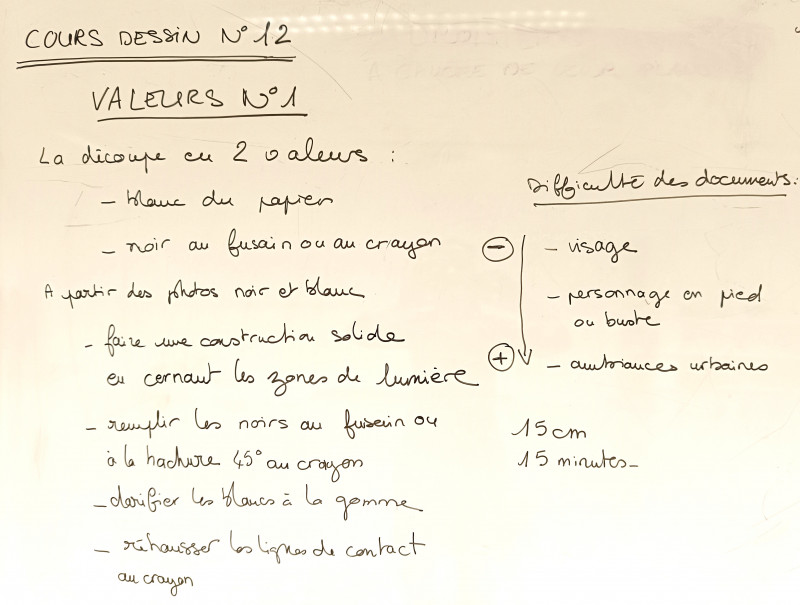 COURS DESSIN N° 12
VALEURS N° 1
La découpe en 2 valeurs :
- blanc du papier
- noir au fusain ou au crayon
A partir des photos noir et blanc
- faire une construction solide
en cernant les zones de lumière
- remplir les noirs au fusain ou
à la hachure 45° au crayon
- clarifier les blancs à la gomme
- réhausser les lignes de contact
au crayon
Difficulté des documents :
- - visage
- personnage en pied
ou buste
+ - ambiances urbaines
15 cm
15 minutes-